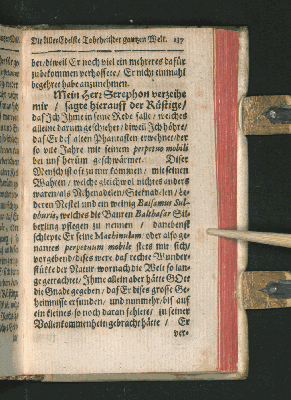 Die AllerEdelste Tohrheit der gantzen Welt. 137
ber/ dieweil Er noch viel ein mehreres dafür
zubekommen verhoffete/ Er nicht einmahl
begehret habe anzunehmen.
Mein Herz Seraphon verzeihe
mir/ sagte hierauff der Rüstige/
daß Ich Ihme in seine Rede falle/ welches
alleine darum geschiehet/ dieweil Ich höhre/
daß Er deß alten Phantasten erwehnet/ der
so viele Jahre mit seinem perpetuo mobili
bey uns herüm geschwärmet. Diser
Mensch ist oft zu mir kommen/ mit seinen
Wahren/ welche gleichwol nichtes anders
waren/ als Nehenadeln/ Steknadeln/ le-
derne Nestel und ein weinig Balsamus Sul-
phuris, welches die Bauren Balthasar Sil-
berling pflegen zu nennen/ danebenst
schlepte Er seine Machinulam, oder also ge-
nantes perpetuum mobile stets mit sich/
vorgebend/ dises were daß rechte Wunder-
stükke der Natur/ wornach die Welt so lan-
ge getrachtet/ Ihme allein aber hätte GOtt
die Gnade gegeben/ daß Er dises grosse Ge-
heimnisse erfunden/ und nunmehr/ biß auf
ein kleines/ so noch daran fehlete/ zu seiner
Vollenkommenheit gebracht hätte/ Er
ver-